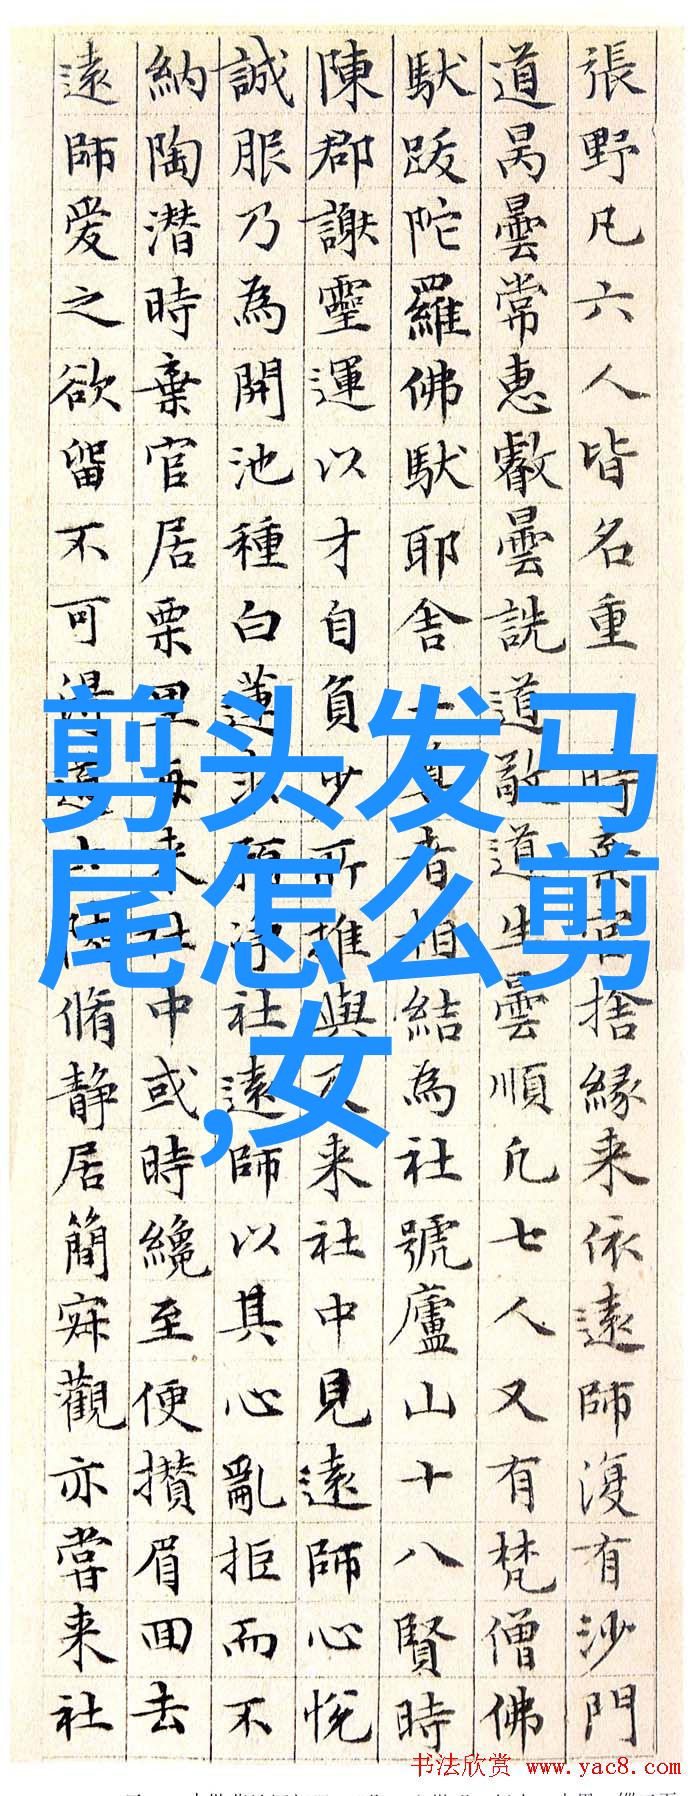 張野凡六人皆名重一時棄官捨緣来依遠師復有沙門
道昺曇常惠叡曇詵道敬道生曇順凡七人又有梵僧佛
馱跋陀羅佛馱耶舍二尊者相結為社號廬山十八賢時
陳郡謝靈運以才自負少所推與及来社中見遠師心悅
誠服乃為開池種白蓮求預淨社遠師以其心亂拒而不
納陶潛時棄官居栗里每来社中或時纔至便攢眉回去
遠師爱之欲留不可得道士陸脩静居簡寂觀亦嘗来社
剪头发马
尾怎么剪
,女
书法欣赏 www.yac8.com